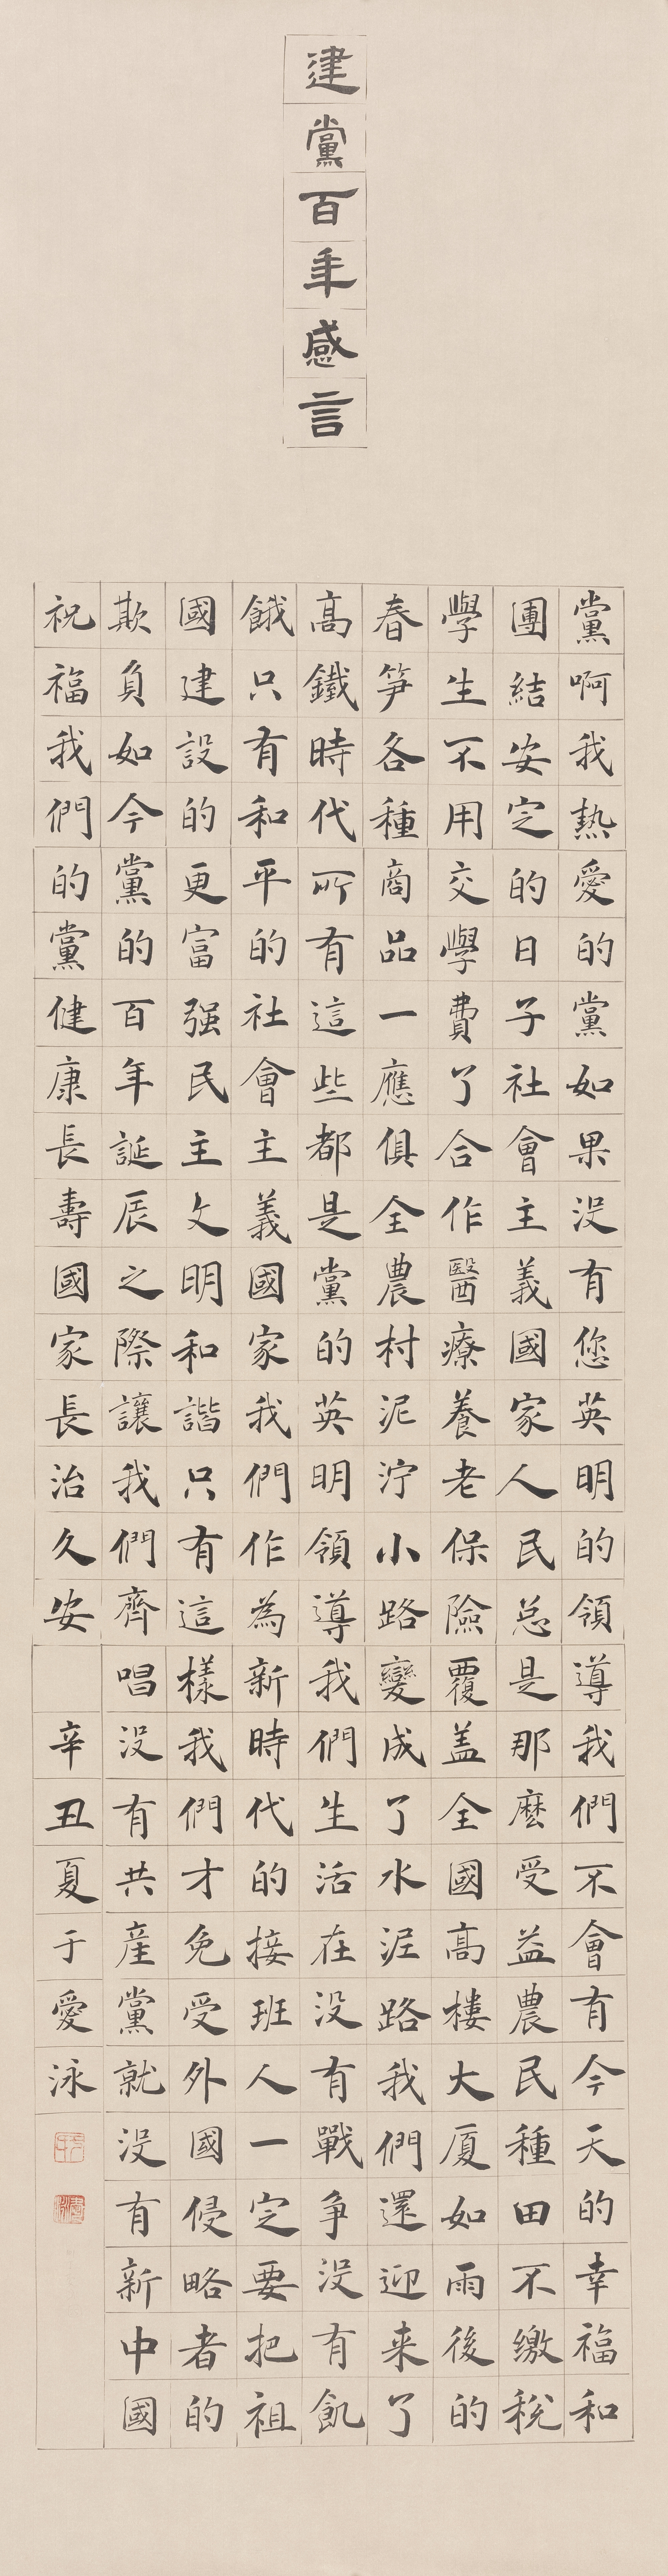 建黨百年感言
黨啊我熱愛的黨如果没有您英明的領導我們不會有今天的幸福和
團結安定的日子社會主義國家人民总是那麽受益農民種田不缴税
學生不用交學費了合作醫療養老保險覆盖全國高樓大厦如雨後的
春笋各種商品一應俱全農村泥泞小路變成了水泥路我們還迎来了
高鐵時代所有這些都是黨的英明領導我們生活在没有戰争没有飢
餓只有和平的社會主義國家我們作為新時代的接班人一定要把祖
國建設的更富强民主文明和諧只有這樣我們才免受外國侵略者的
欺負如今黨的百年誕辰之際讓我們齊唱没有共産黨就没有新中國
祝福我們的黨健康長壽國家長治久安 辛丑夏于愛泳